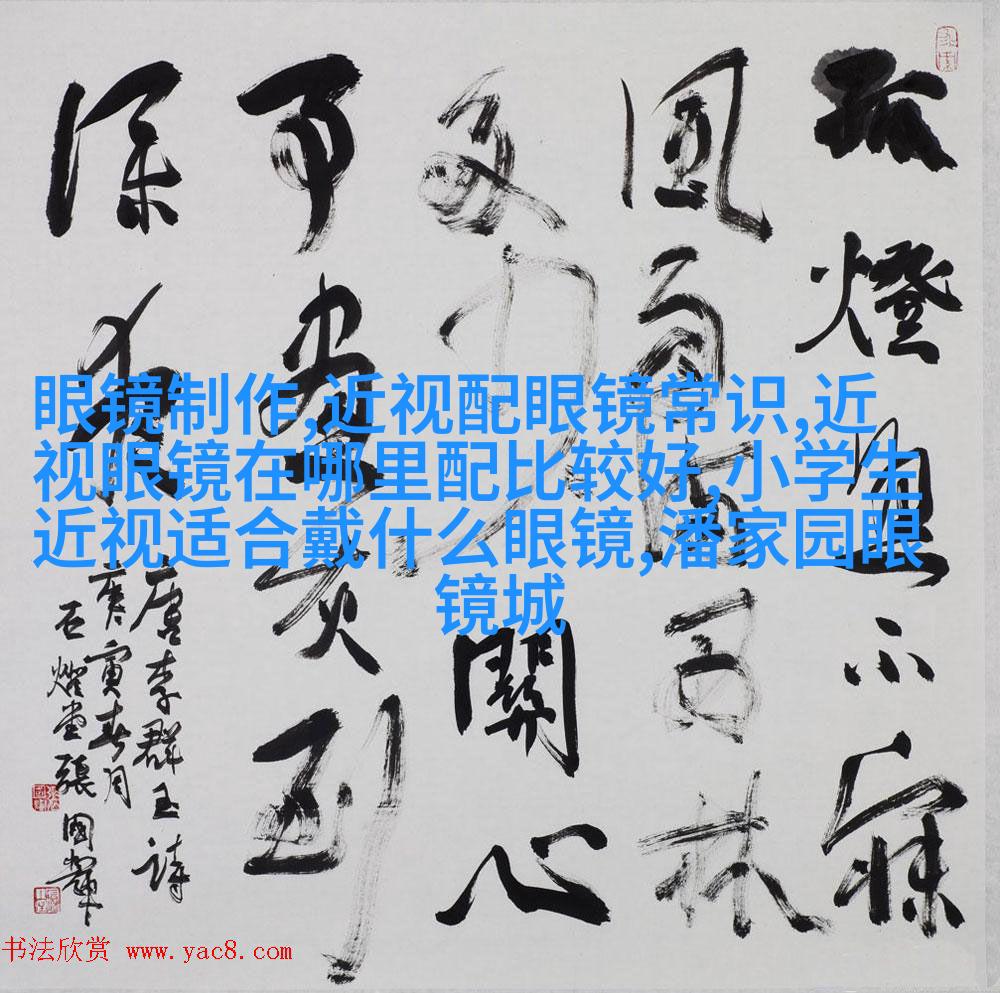 眼镜制作,近视配眼镜常识,近
视眼镜在哪里配比较好,小学生
近视适合戴什么眼镜,潘家园眼
镜城
孤燈不寐
風雨西林
多少關心
事書灰到
深夜
唐李群玉詩
庚寅春月
石堂張國輝
书法欣赏 www.yac8.com